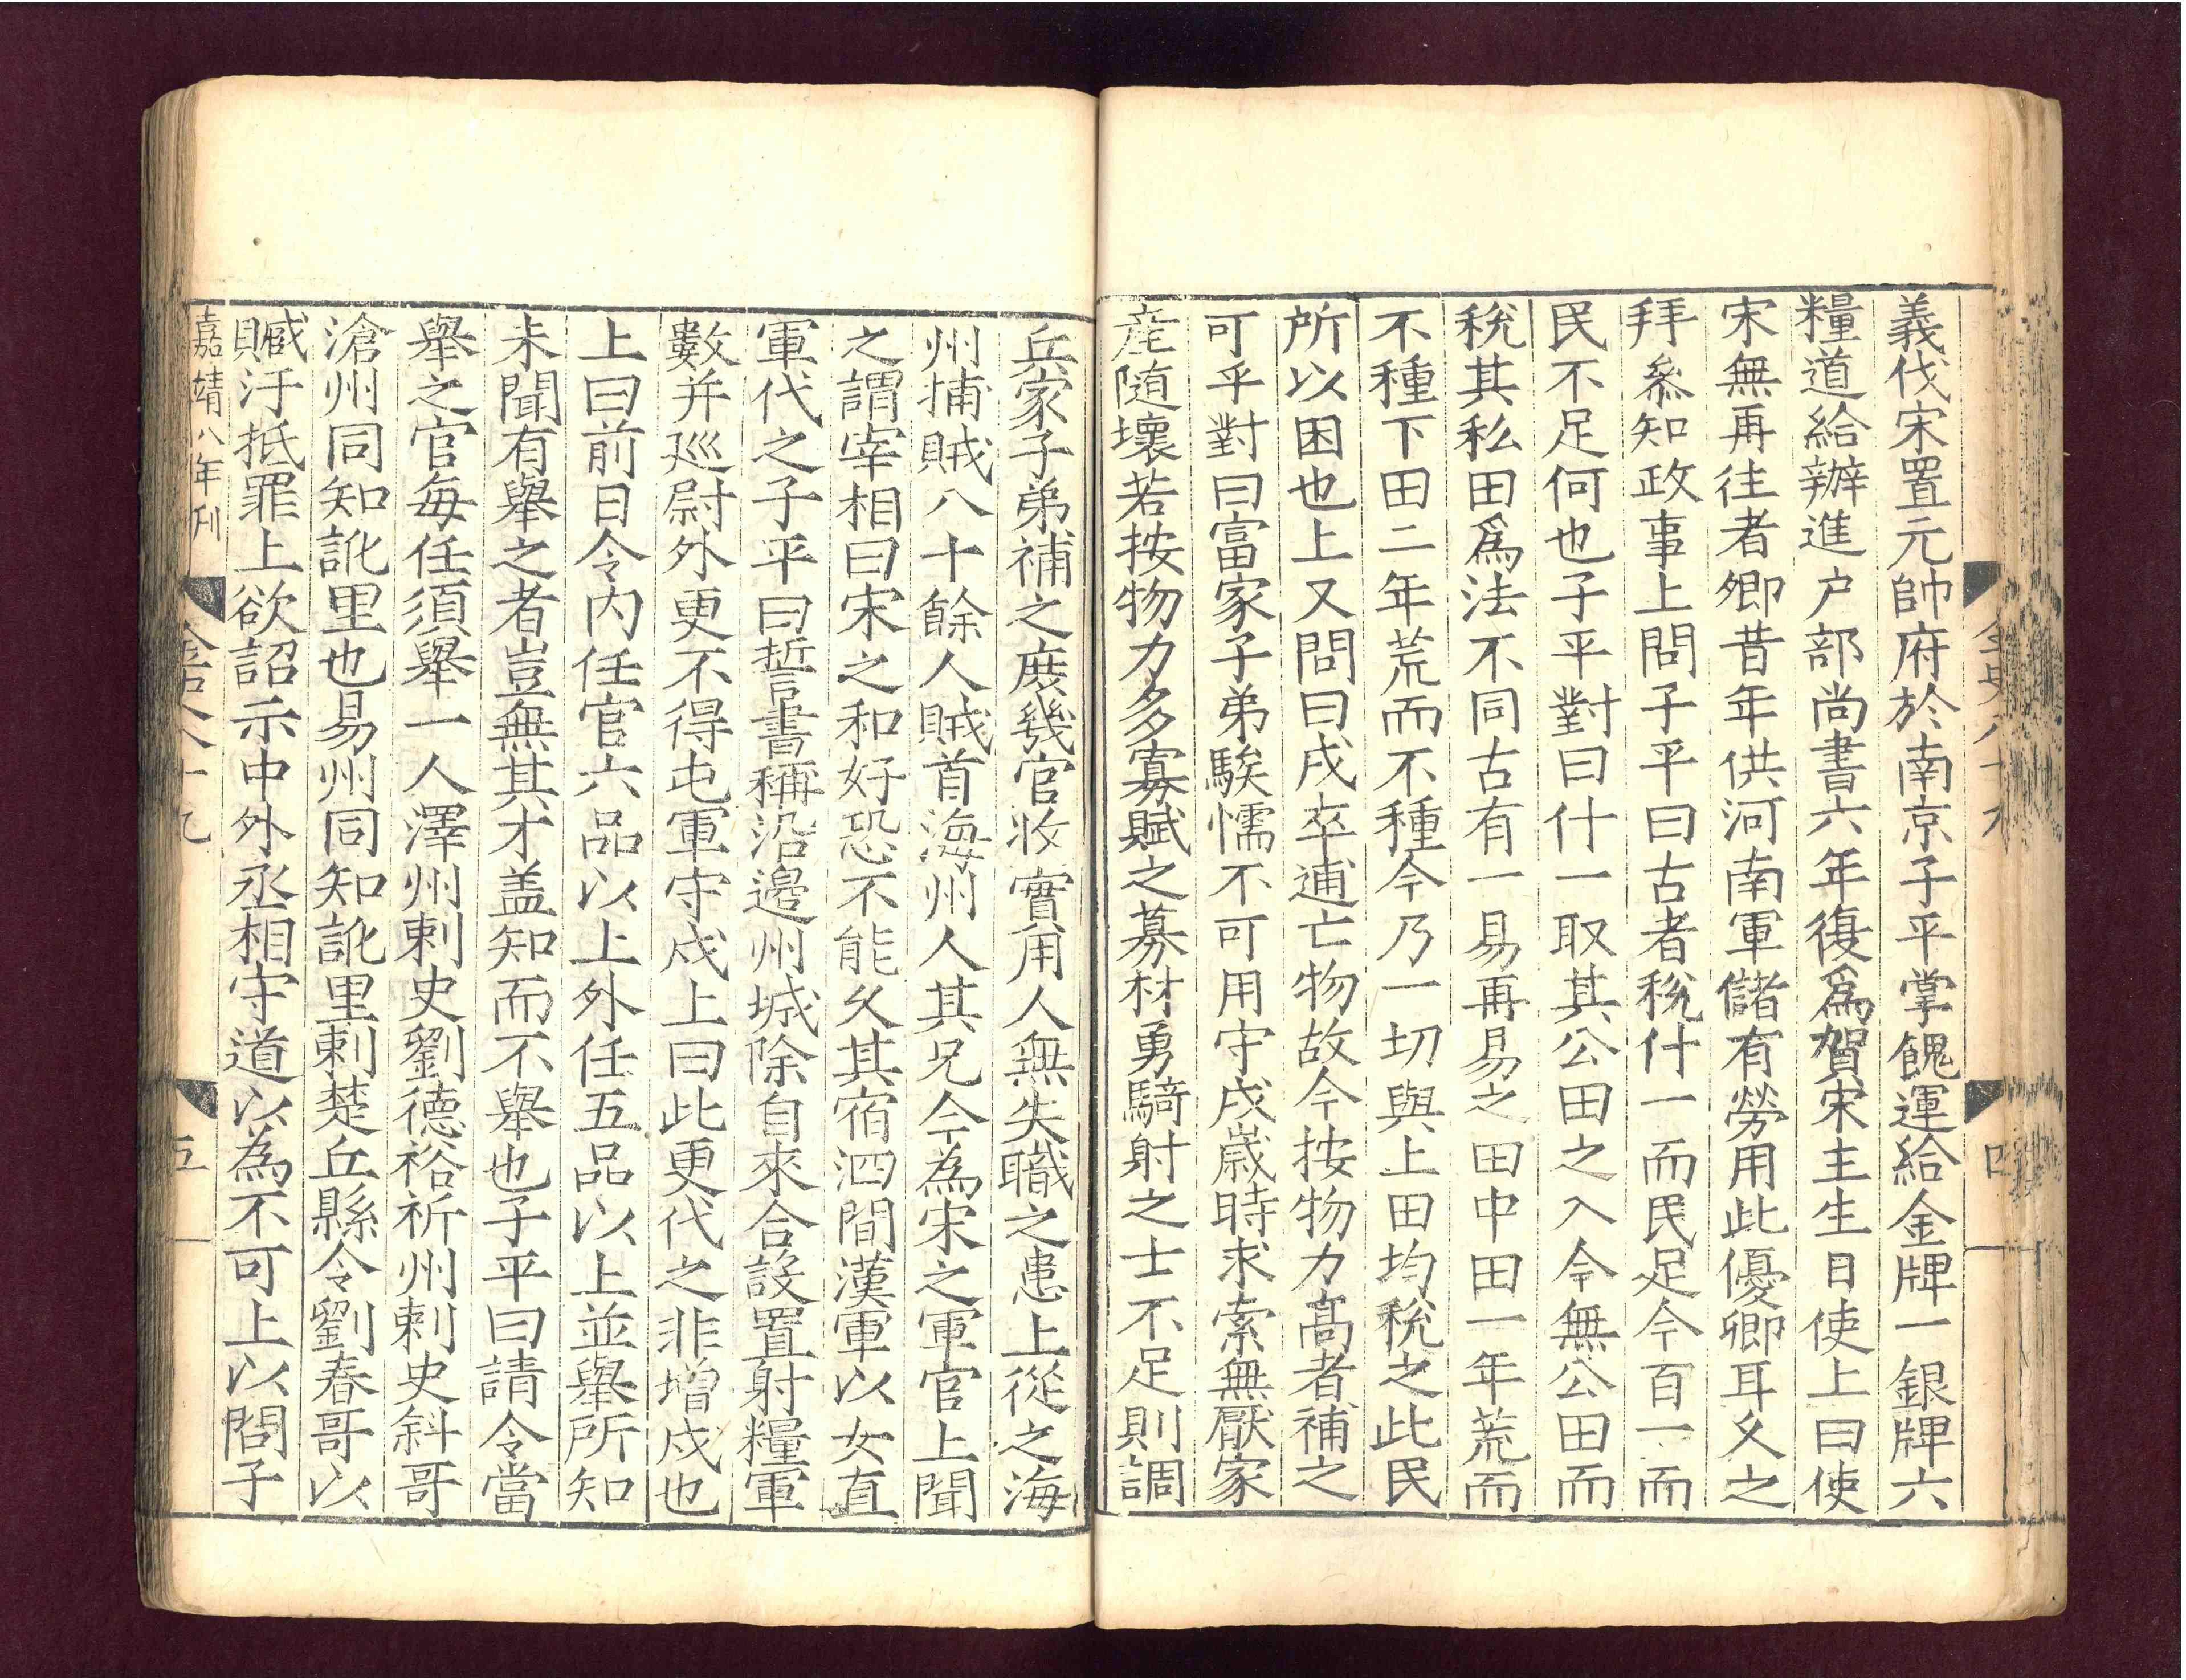 義伐宋置元帥府於南京子平掌餽運給金牌一銀牌六
糧道給辦進户部尚書六年復爲賀宋主生日使上曰使
宋無再往者卿昔年供河南軍儲有勞用此優卿耳久之
拜叅知政事上問子平曰古者稅什一而民足今百一而
民不足何也子平對曰什一取其公田之入今無公田而
稅其私田爲法不同古有一易再易之田中田一年荒而
不種下田二年荒而不種今乃一切與上田均稅之此民
所以困也上又問曰戍卒逋亡物故今按物力高者補之
可乎對曰富家子弟騃懦不可用守戍歲時求索無厭家
産隨壞若按物力多寡賦之募材勇騎射之士不足則調
兵家子弟補之庶幾官收實用人無失職之患上從之海
州捕賊八十餘人賊首海州人其兄今為宋之軍官上聞
之謂宰相曰宋之和好恐不能久其宿泗間漢軍以女直
軍代之子平曰誓書稱沿邊州城除自來合設置射糧軍
數并巡尉外更不得屯軍守戍上曰此更代之非增戍也
上曰前日令内任官六品以上外任五品以上並舉所知
未聞有舉之者豈無其才盖知而不舉也子平曰請令當
舉之官每任須舉一人澤州刺史劉德裕祈州刺史斜哥
滄州同知訛里也易州同知訛里剌楚丘縣令劉春哥以
贓汙抵罪上欲詔示中外丞相守道以為不可上以問子
嘉靖八年刊
金史八十九
五